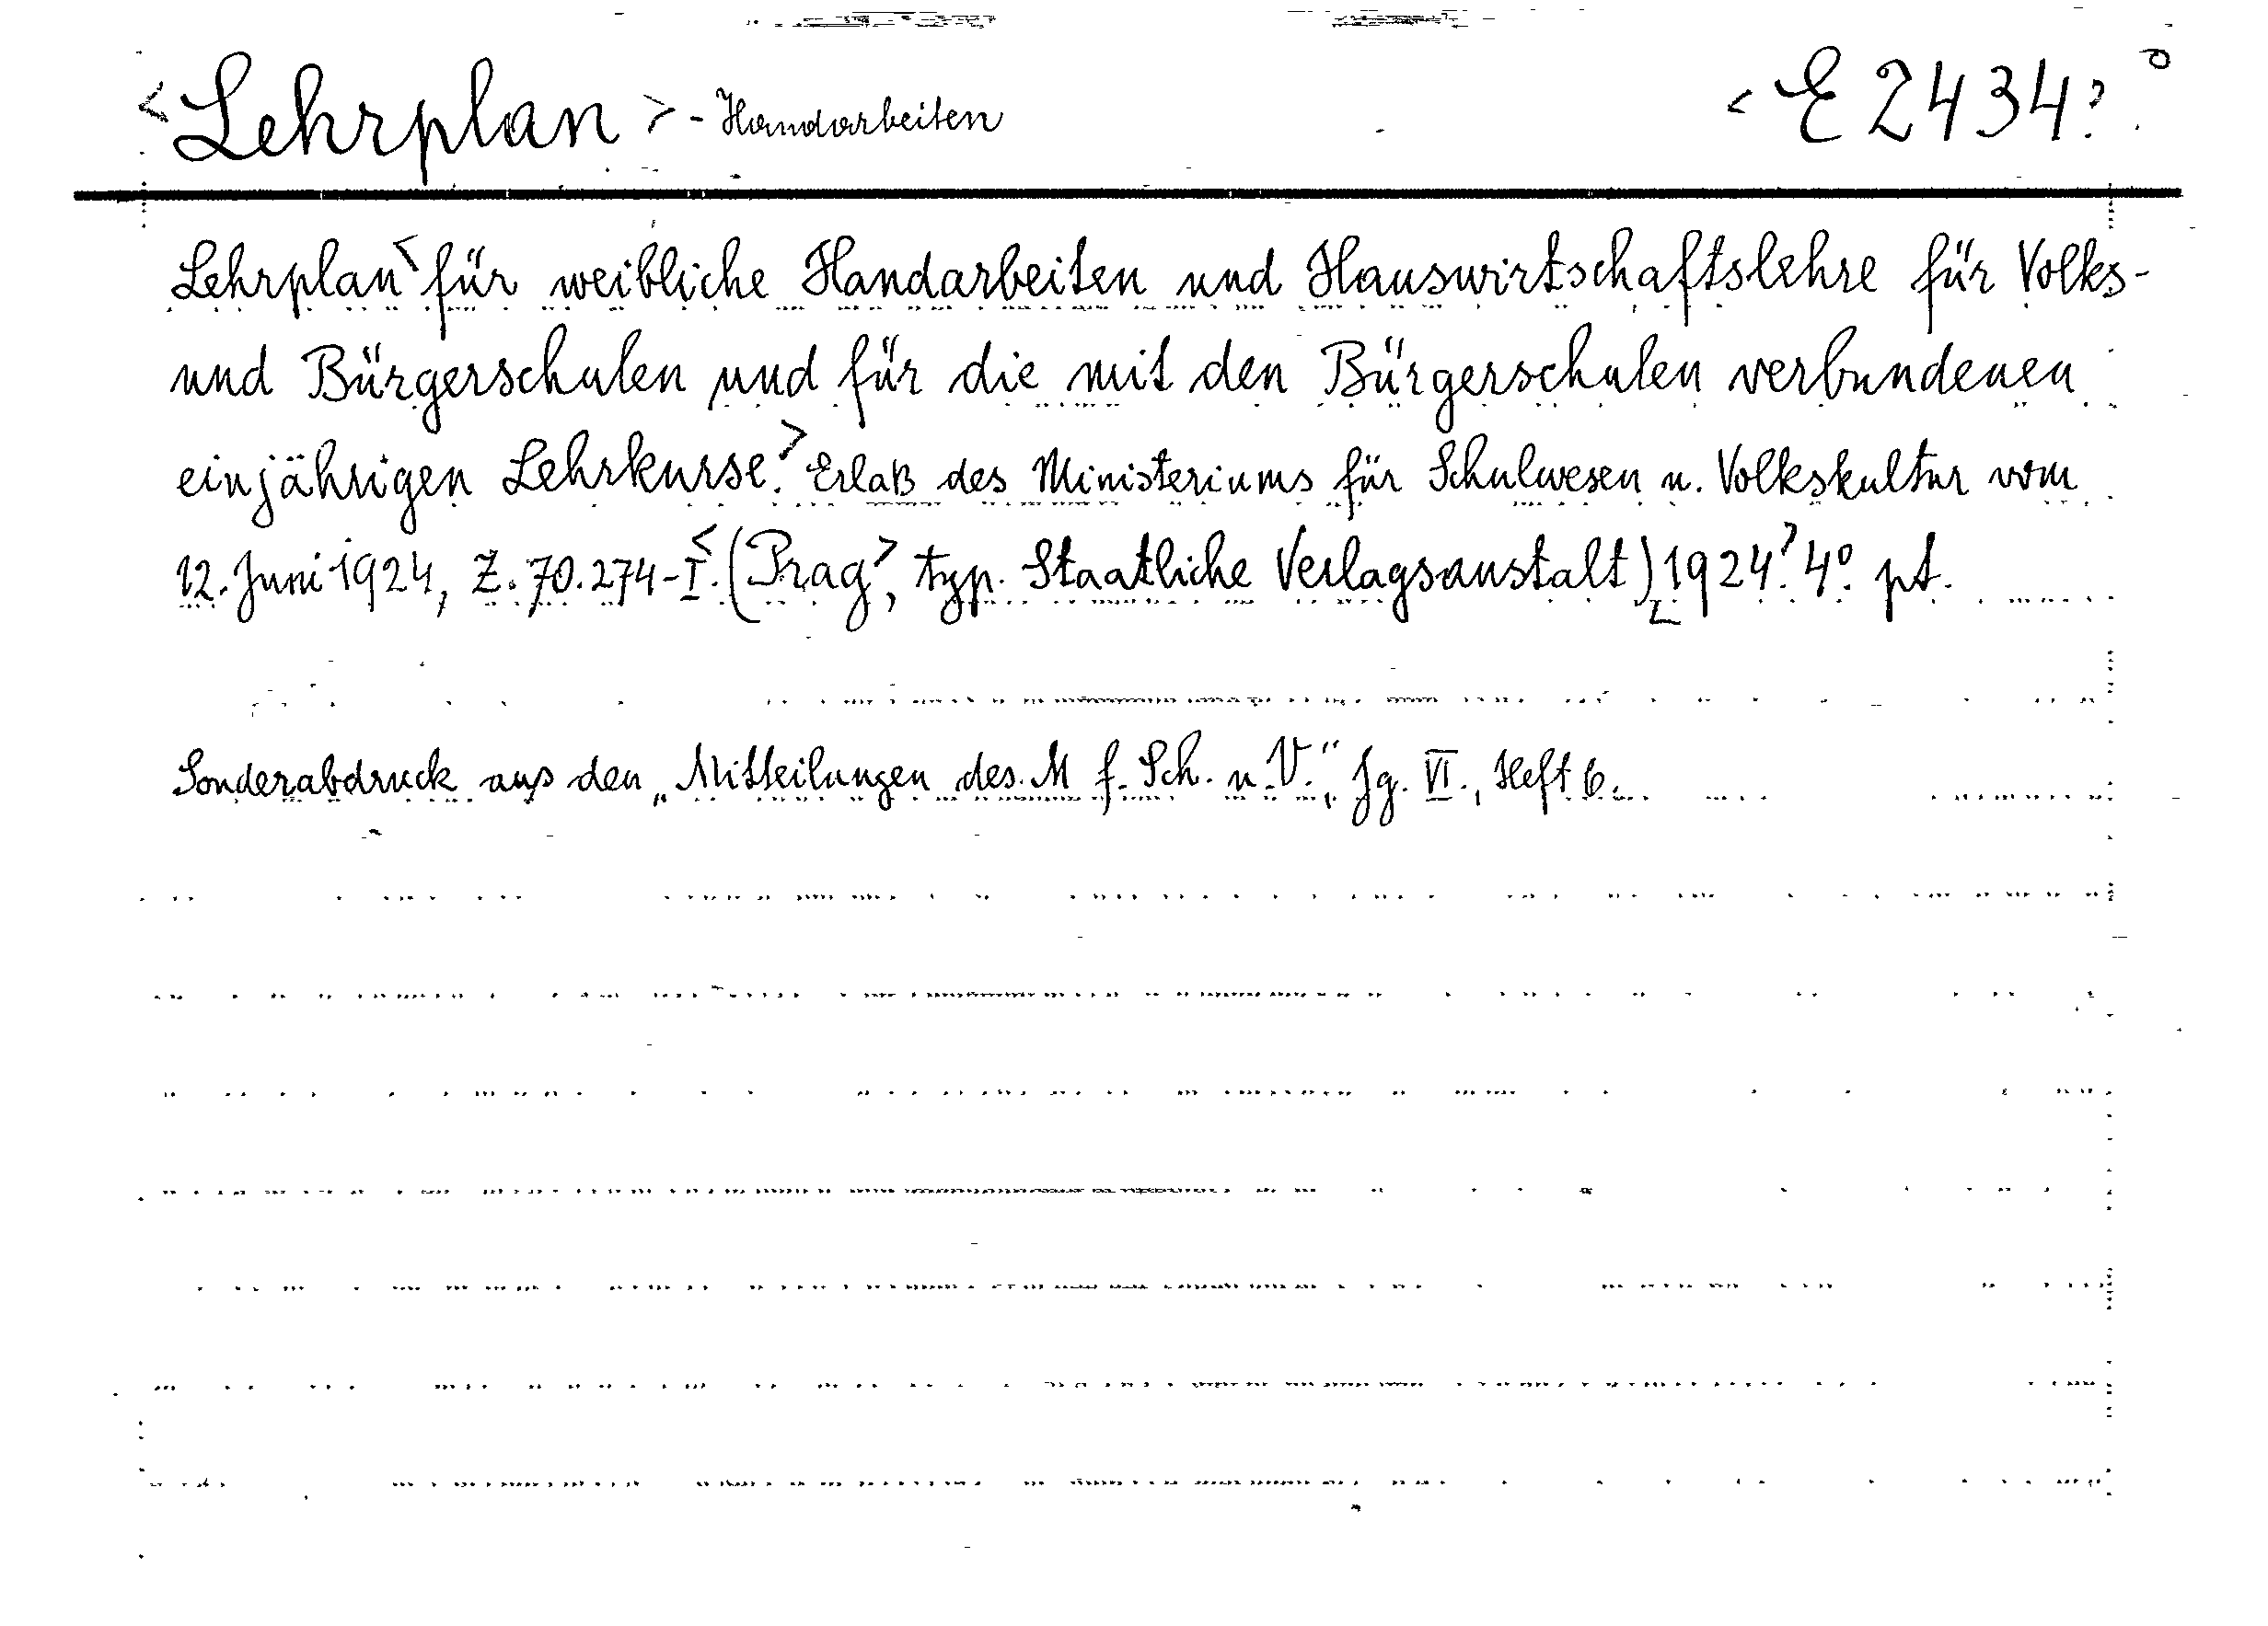 <Lehrplan> - Handarbeiten <E 2434>
Lehrplan< für weibliche Handarbeiten und Hauswirtschaftslehre für Volks-
und Bürgerschulen und für die mit den Bürgerschulen verbundenen
einjährigen Lehrkurse.> Erlaß des Ministeriums für Schulwesen u. Volkskultur vom
12. Juni 1924, Z. 70.274-I.< (Prag>, typ. Staatliche Verlagsanstalt) 1924.> 4° pt.
Sonderabdruck aus den „Mitteilungen des M f. Sch. u. V.", Jg. VI., Heft 6.